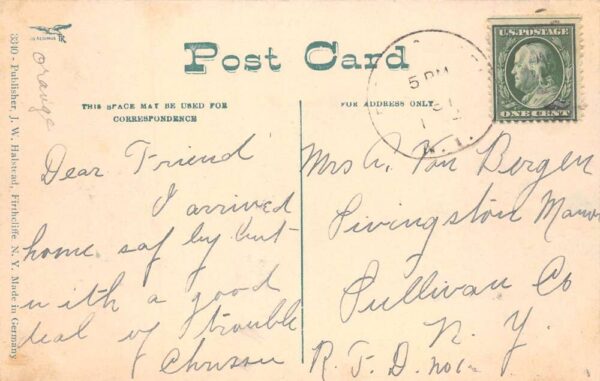 Post Card
THIS SPACE MAY BE USED FOR
CORRESPONDENCE
FOR ADDRESS ONLY
U.S. POSTAGE
ONE CENT
5 PM
N. Y.
orange
3340 - Publisher, J. W. Halstead, Firthcliffe N. Y. Made in Germany
Dear Friend
I arrived
home saf by but
with a good
deal of trouble
Mrs A. Van Bergen
Livingston Manor
Sullivan Co
N. Y.
R. F. D. no1